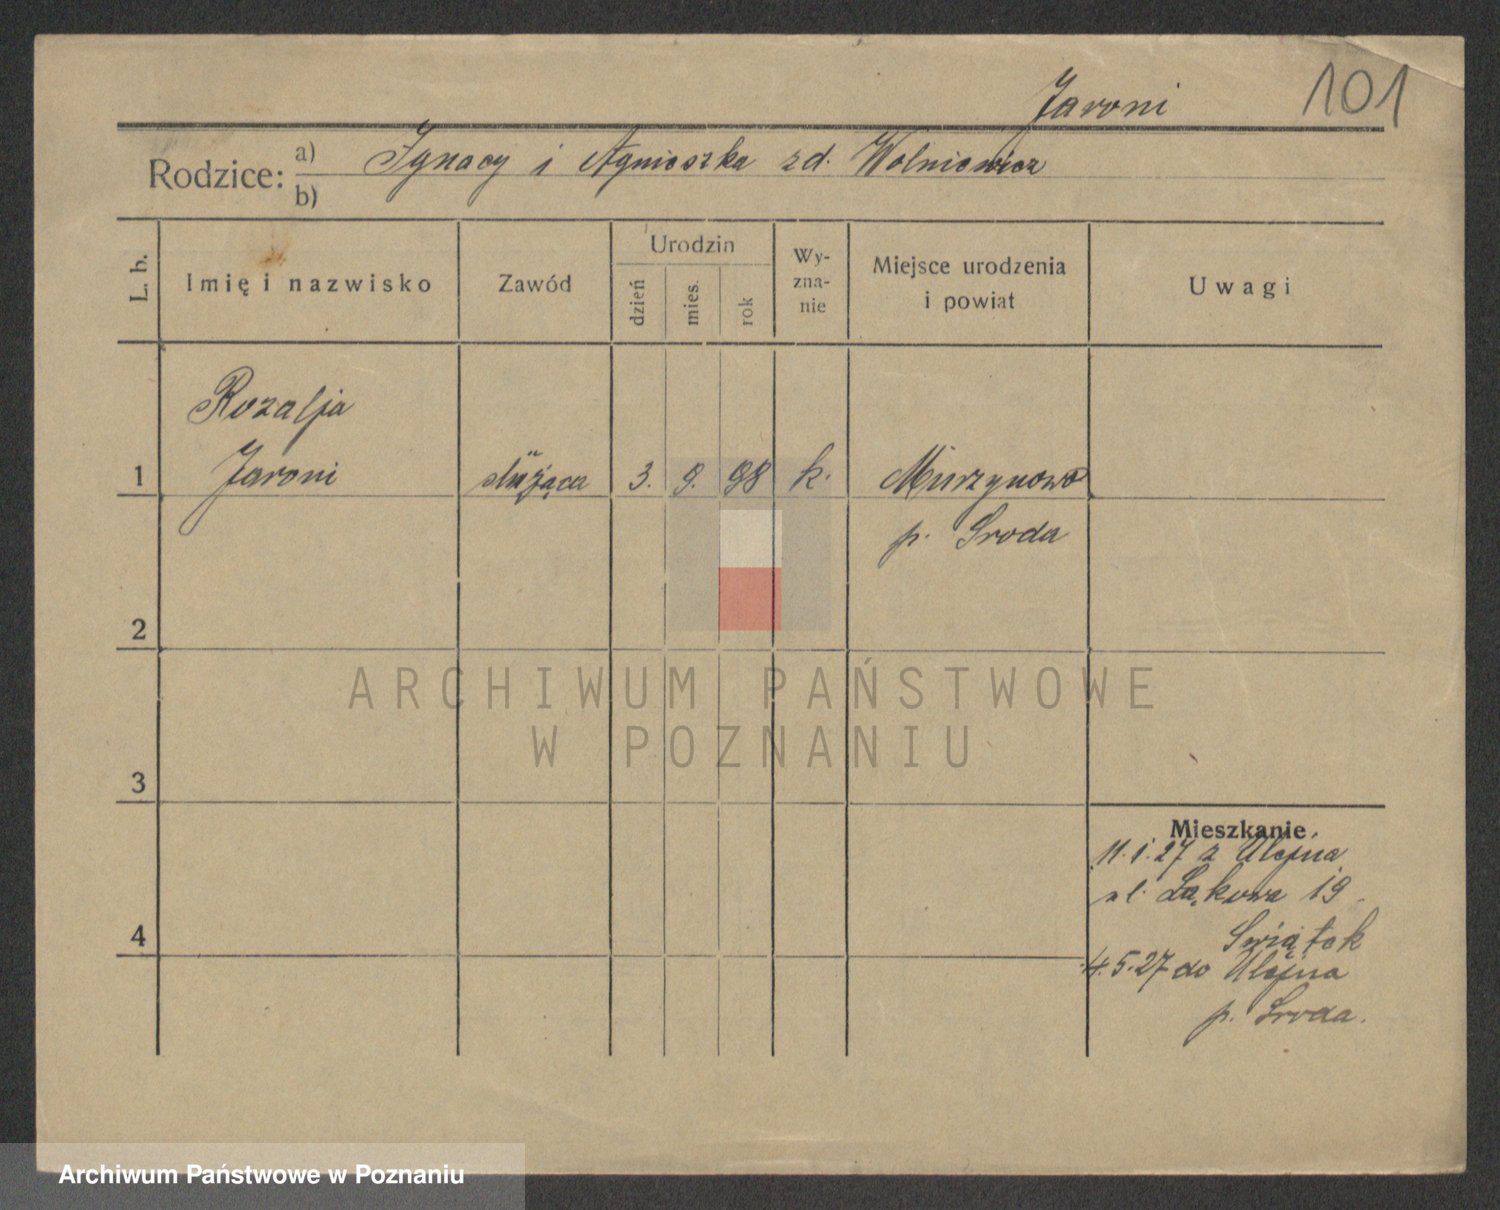 101
Jaroni
Rodzice: a) Ignacy i Agnieszka zd. Wolniewicz
b)
L. b.
Imię i nazwisko
Zawód
Urodzin
dzień
mies.
rok
Wy-
zna-
nie
Miejsce urodzenia
i powiat
Uwagi
Rozalja
1 Jaroni służąca 3. 9. 98 k. Murzynowo
p. Sroda
2
3
4
Mieszkanie
11.1.27 z Ulejna
ul. Łąkowa 19
Swiątek
4.5.27 do Ulejna
p. Sroda.
ARCHIWUM PAŃSTWOWE
W POZNANIU
Archiwum Państwowe w Poznaniu